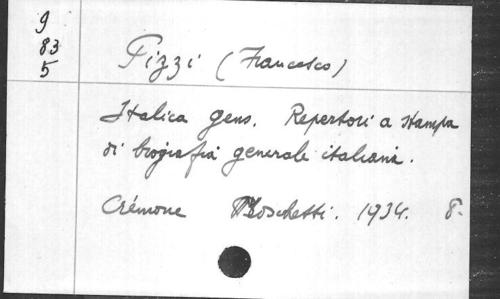 9
83
5
Pizzi (Francesco)
Italica gens. Repertori a stampa
di biografia generale italiani.
Crémone Boschetti. 1934. 8.